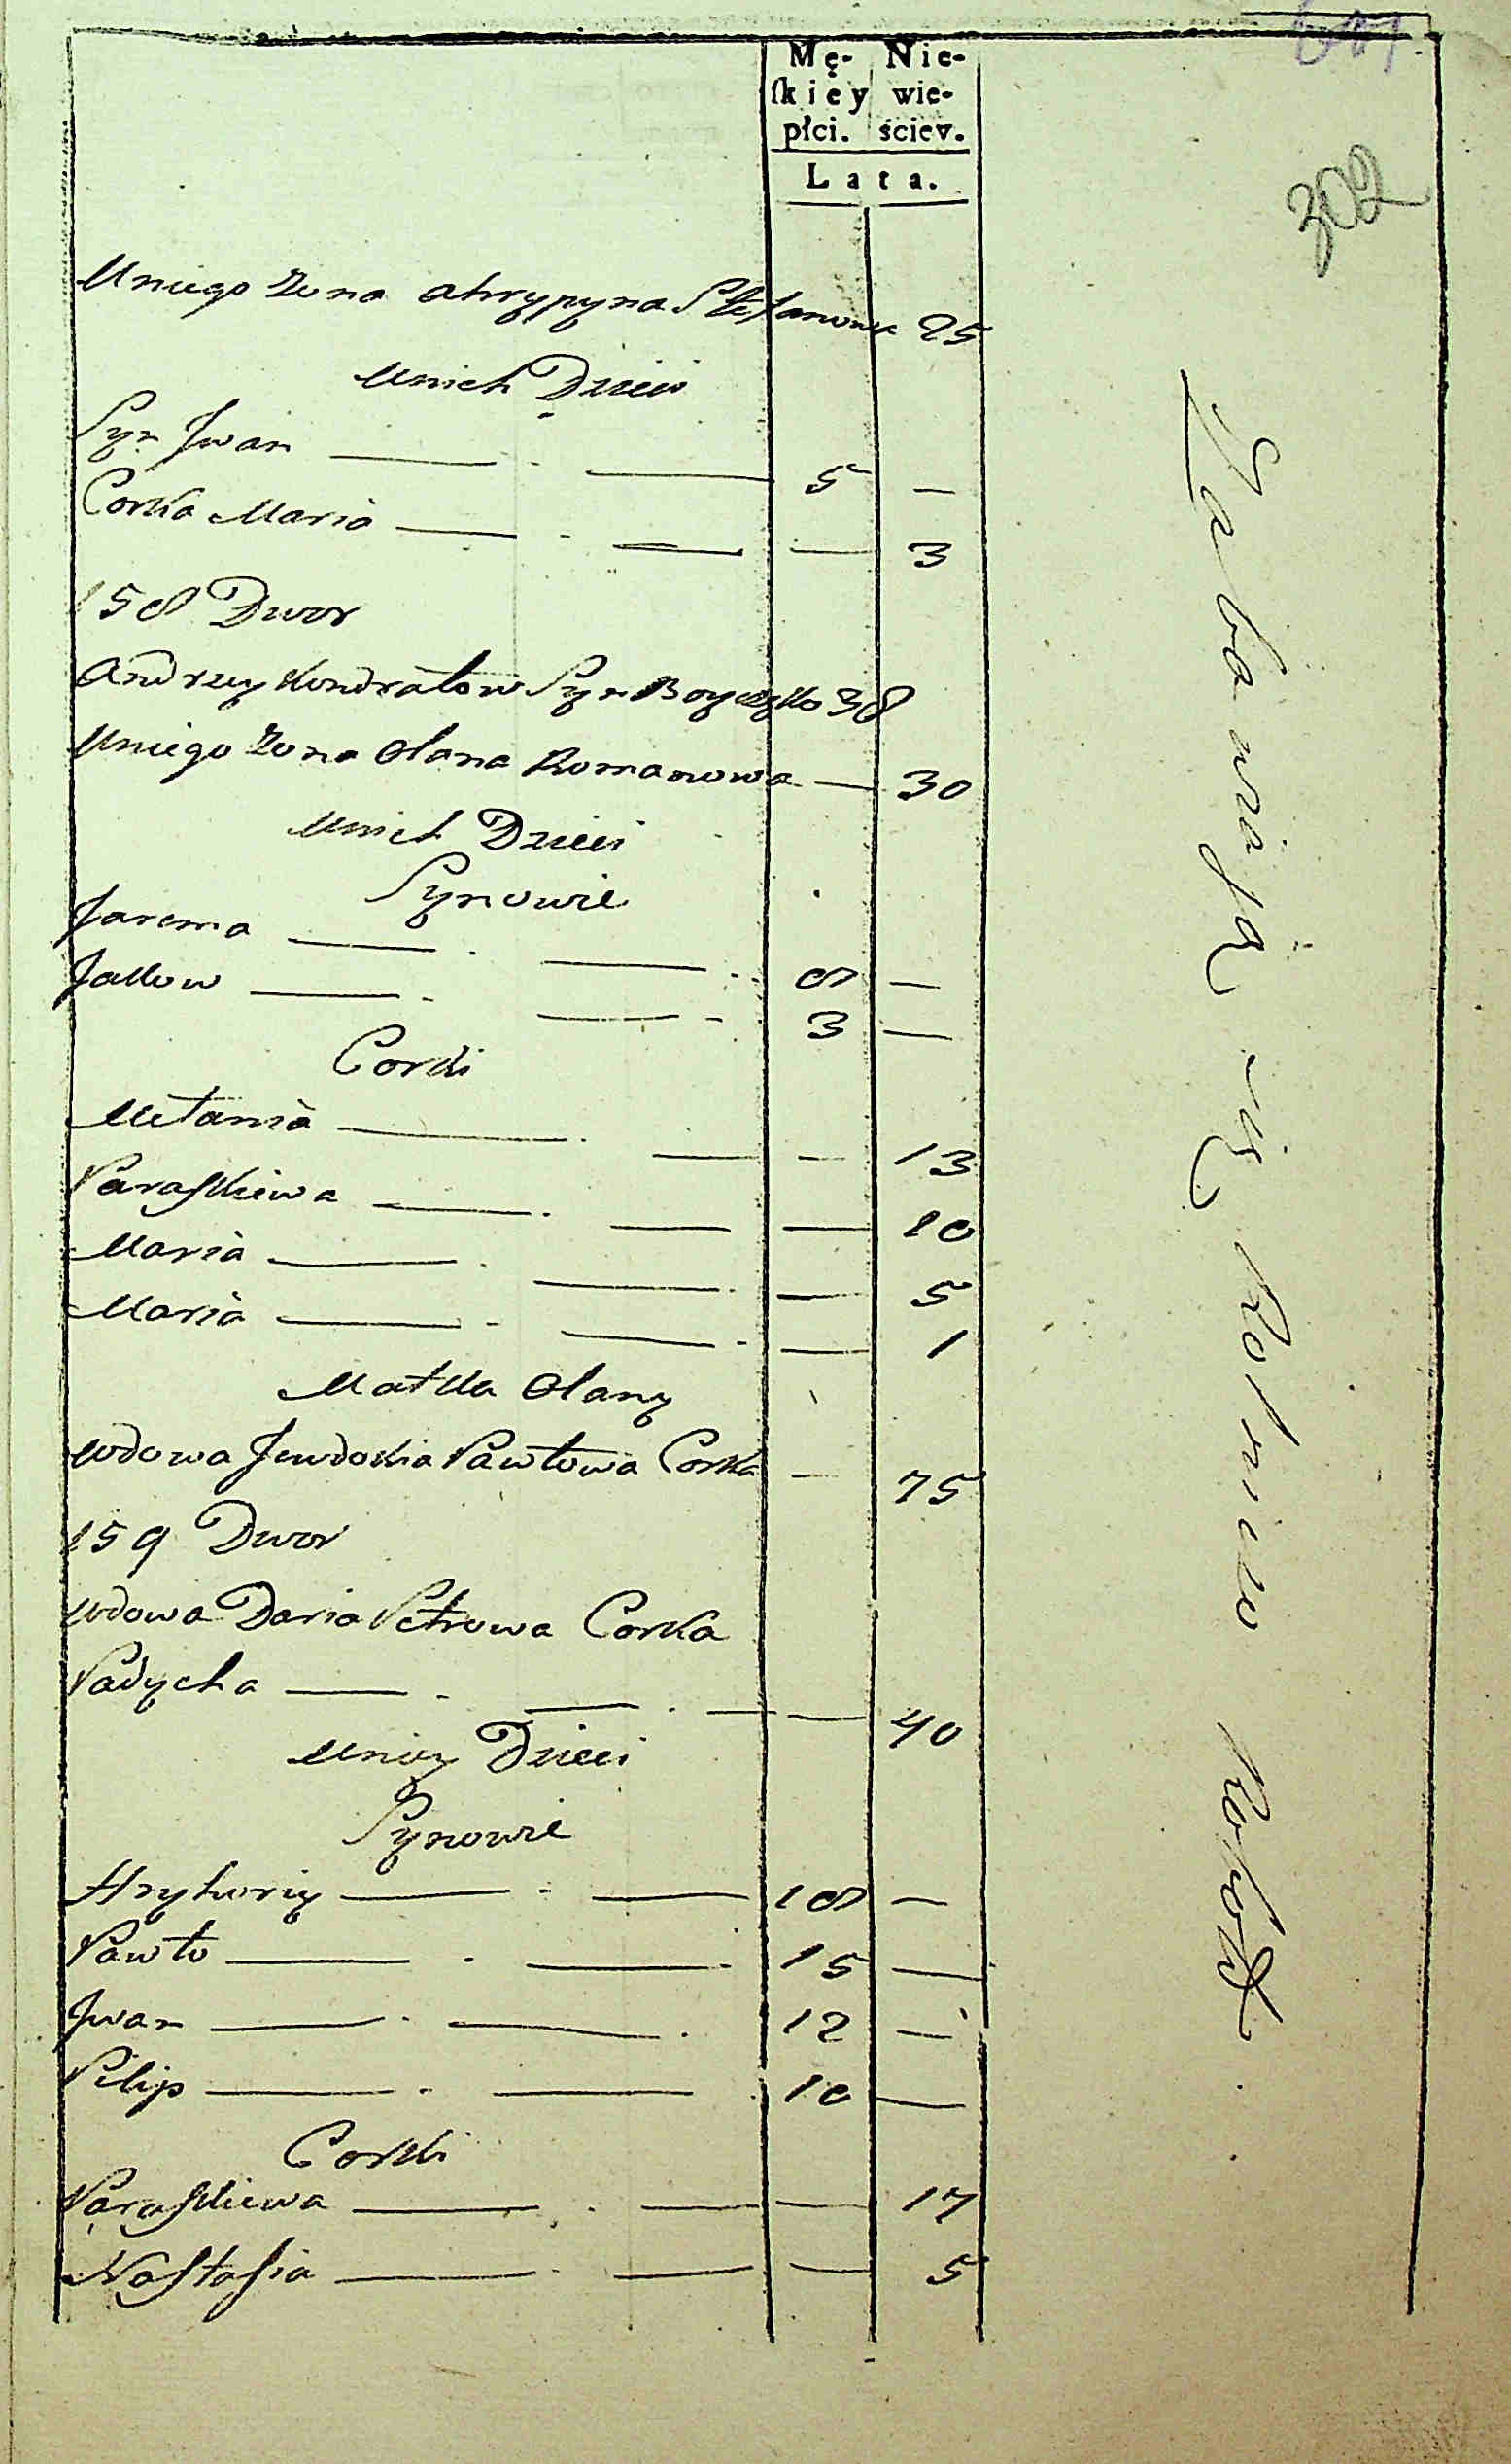 Mę- Nie-
skiey wie-
płci. ściey.
Lata.
302
Uniego Zona Ahrypyna Stefanowa 25
Unich Dzieci
Syn Jwan — — 5 —
Corka Maria — — — 3
158 Dwor
Andrzey Kondratow Syn Boyczyko 38
Uniego Zona Olana Romanowa — 30
Unich Dzieci
Synowie
Jarema — — 8 —
Jakow — — 3 —
Corki
Mełania — — — 13
Paraskiewa — — — 10
Maria — — — 5
Maria — — — 1
Matka Olany
Wdowa Jewdokia Pawłowa Corka — 75
159 Dwor
Wdowa Daria Petrowa Corka
Padycha — — — — 40
Uniey Dzieci
Synowie
Hryhoriy — — 18 —
Pawło — — 15 —
Jwan — — 12 —
Pilip — — 10 —
Corki
Paraskiewa — — — 17
Nastasia — — — 5
Zabawiają się Rolniczo Robotą